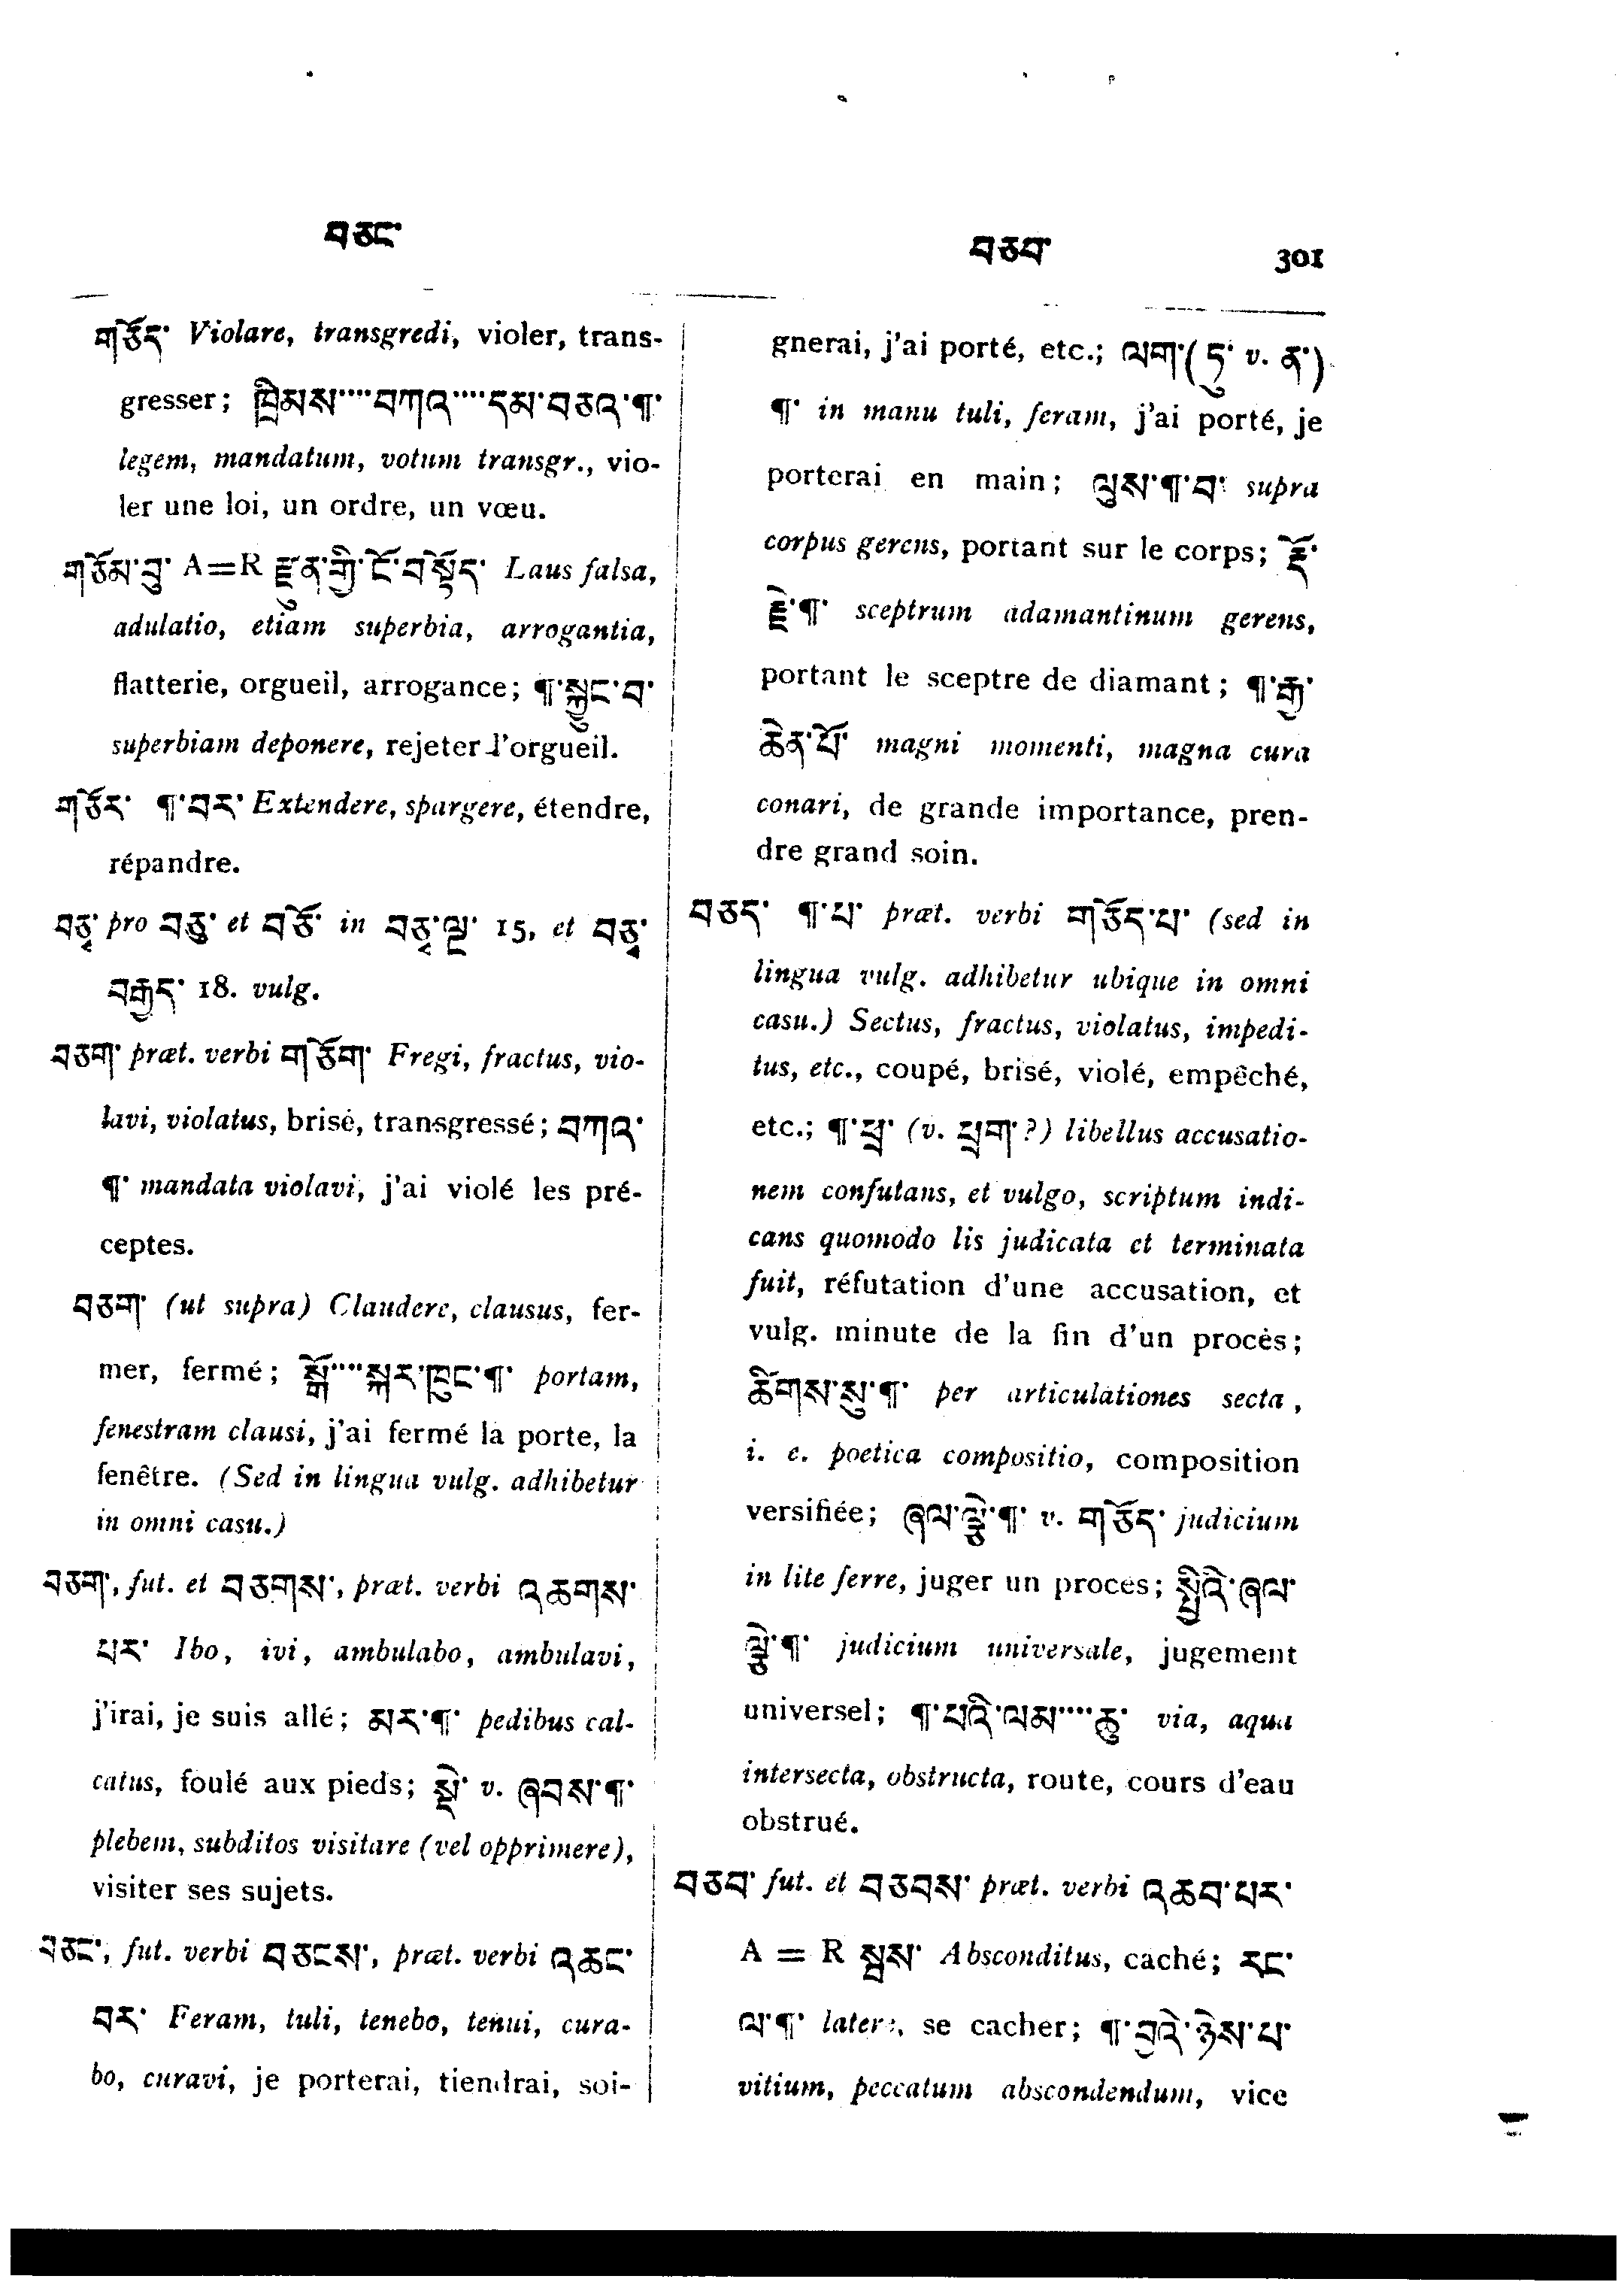 བཅང་
བཅབ་ 301
གཅོད་ Violare, transgredi, violer, trans-
gresser; ཁྲིམས་་་་བཀའ་་་་དམ་བཅའ་¶་
legem, mandatum, votum transgr., vio-
ler une loi, un ordre, un vœu.
གཅོམ་བུ་ A=R རྫུན་གྱི་ངོ་བསྟོད་ Laus falsa,
adulatio, etiam superbia, arrogantia,
flatterie, orgueil, arrogance; ¶་སྐྱུང་བ་
superbiam deponere, rejeter l'orgueil.
གཅོར་ ¶་བར་ Extendere, spargere, étendre,
répandre.
བཅྭ་ pro བཅུ་ et བཅོ་ in བཅྭ་ལྔ་ 15, et བཅྭ་
བརྒྱད་ 18. vulg.
བཅག་ præt. verbi གཅོག་ Fregi, fractus, vio-
lavi, violatus, brisé, transgressé; བཀའ་
¶་ mandata violavi, j'ai violé les pré-
ceptes.
བཅག་ (ut supra) Claudere, clausus, fer-
mer, fermé; སྒོ་་་་སྐར་ཁུང་¶་ portam,
fenestram clausi, j'ai fermé la porte, la
fenêtre. (Sed in lingua vulg. adhibetur
in omni casu.)
བཅག་, fut. et བཅགས་, præt. verbi འཆགས་
པར་ Ibo, ivi, ambulabo, ambulavi,
j'irai, je suis allé; མར་¶་ pedibus cal-
catus, foulé aux pieds; སྡེ་ v. ཞབས་¶་
plebem, subditos visitare (vel opprimere),
visiter ses sujets.
བཅང་, fut. verbi བཅངས་, præt. verbi འཆང་
བར་ Feram, tuli, tenebo, tenui, cura-
bo, curavi, je porterai, tiendrai, soi-
gnerai, j'ai porté, etc.; ལག་(ཏུ་ v. ན་)
¶་ in manu tuli, feram, j'ai porté, je
porterai en main; ལུས་¶་བ་ supra
corpus gerens, portant sur le corps; རྡོ་
རྗེ་¶་ sceptrum adamantinum gerens,
portant le sceptre de diamant; ¶་རྒྱ་
ཆེན་པོ་ magni momenti, magna cura
conari, de grande importance, pren-
dre grand soin.
བཅད་ ¶་པ་ præt. verbi གཅོད་པ་ (sed in
lingua vulg. adhibetur ubique in omni
casu.) Sectus, fractus, violatus, impedi-
tus, etc., coupé, brisé, violé, empêché,
etc.; ¶་ཕྲ་ (v. ཕྲག་?) libellus accusatio-
nem confutans, et vulgo, scriptum indi-
cans quomodo lis judicata et terminata
fuit, réfutation d'une accusation, et
vulg. minute de la fin d'un procès;
ཚིགས་སུ་¶་ per articulationes secta,
i. e. poetica compositio, composition
versifiée; ཞལ་ལྕེ་¶་ v. གཅོད་ judicium
in lite ferre, juger un procès; སྤྱིའི་ཞལ་
ལྕེ་¶་ judicium universale, jugement
universel; ¶་པའི་ལམ་་་་ཆུ་ via, aqua
intersecta, obstructa, route, cours d'eau
obstrué.
བཅབ་ fut. et བཅབས་ præt. verbi འཆབ་པར་
A = R སྦས་ Absconditus, caché; རང་
ལ་¶་ latere, se cacher; ¶་བྱའི་ཉེས་པ་
vitium, peccatum abscondendum, vice